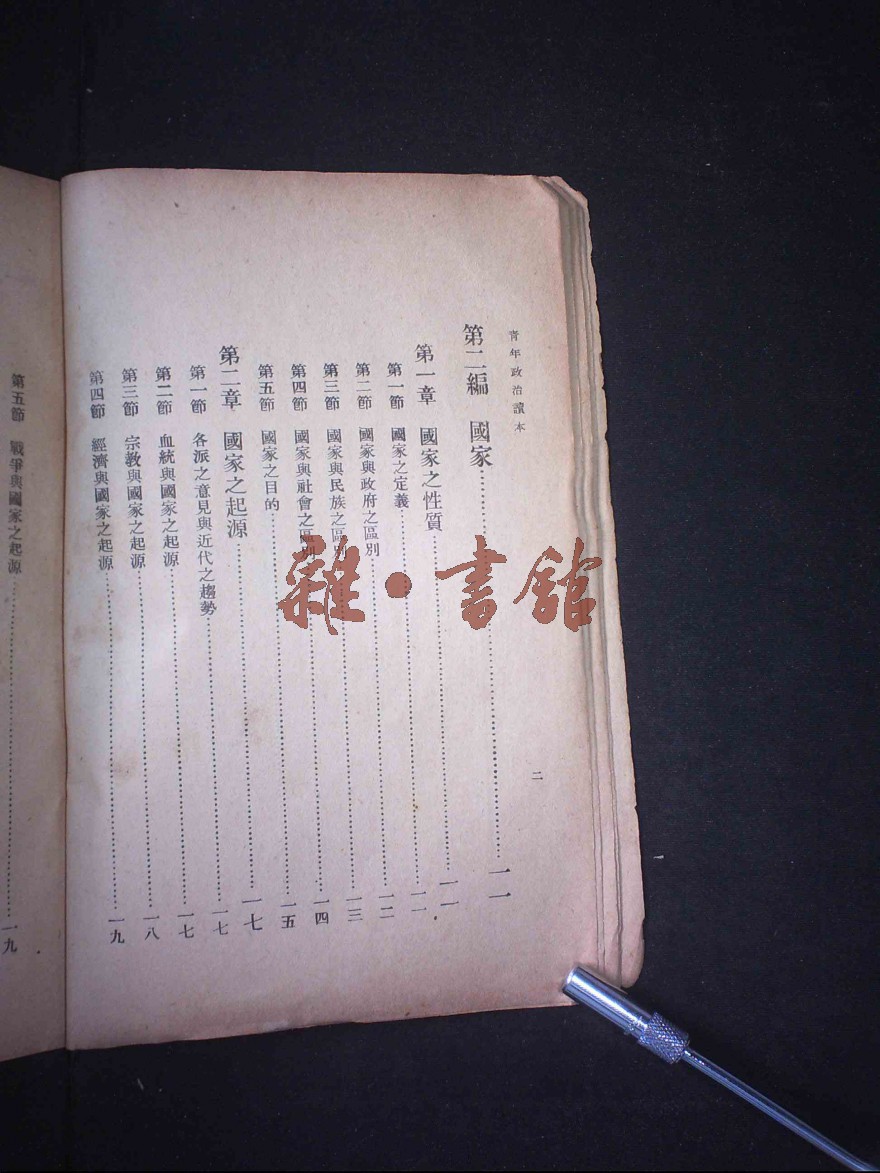 青年政治讀本
二
第二編 國家 一一
第一章 國家之性質 一一
第一節 國家之定義 一一
第二節 國家與政府之區別 一二
第三節 國家與民族之區別 一三
第四節 國家與社會之區別 一四
第五節 國家之目的 一五
第二章 國家之起源 一七
第一節 各派之意見與近代之趨勢 一七
第二節 血統與國家之起源 一七
第三節 宗教與國家之起源 一八
第四節 經濟與國家之起源 一九
第五節 戰爭與國家之起源 一九
雜·書館